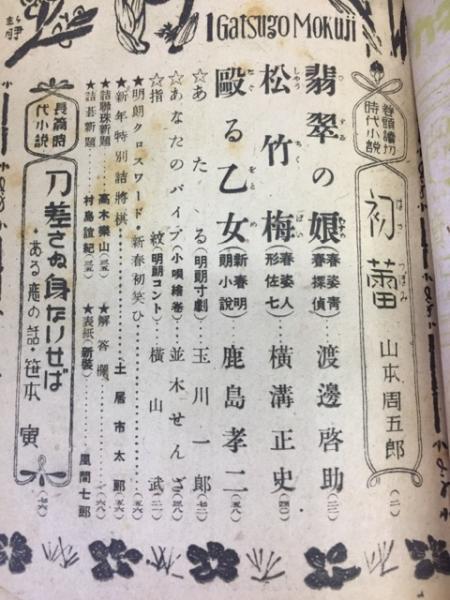 1 Gatsugo Mokuji
巻頭讀切
時代小說
初蕾
はつつぼみ
山本周五郎(二)
翡翠の娘(春姿靑春探偵)渡邊啓助
松竹梅(春姿人形佐七)橫溝正史
毆る乙女(新春明朗小說)鹿島孝二
☆あたる(明朗寸劇)玉川一郎
☆あなたのパイプ(小唄繪卷)並木せんざ
☆指紋(明朗コント)橫山武
★明朗クロスワード・新春初笑ひ
★新年特別詰將棋 土居市太郎
★詰聯珠新題 高木樂山 ★解答欄
★詰碁新題 村島誼紀 ★表紙(新裝)風間七郎
長篇時
代小說
刀差さぬ身なりせば
・ある戀の話・笹本寅